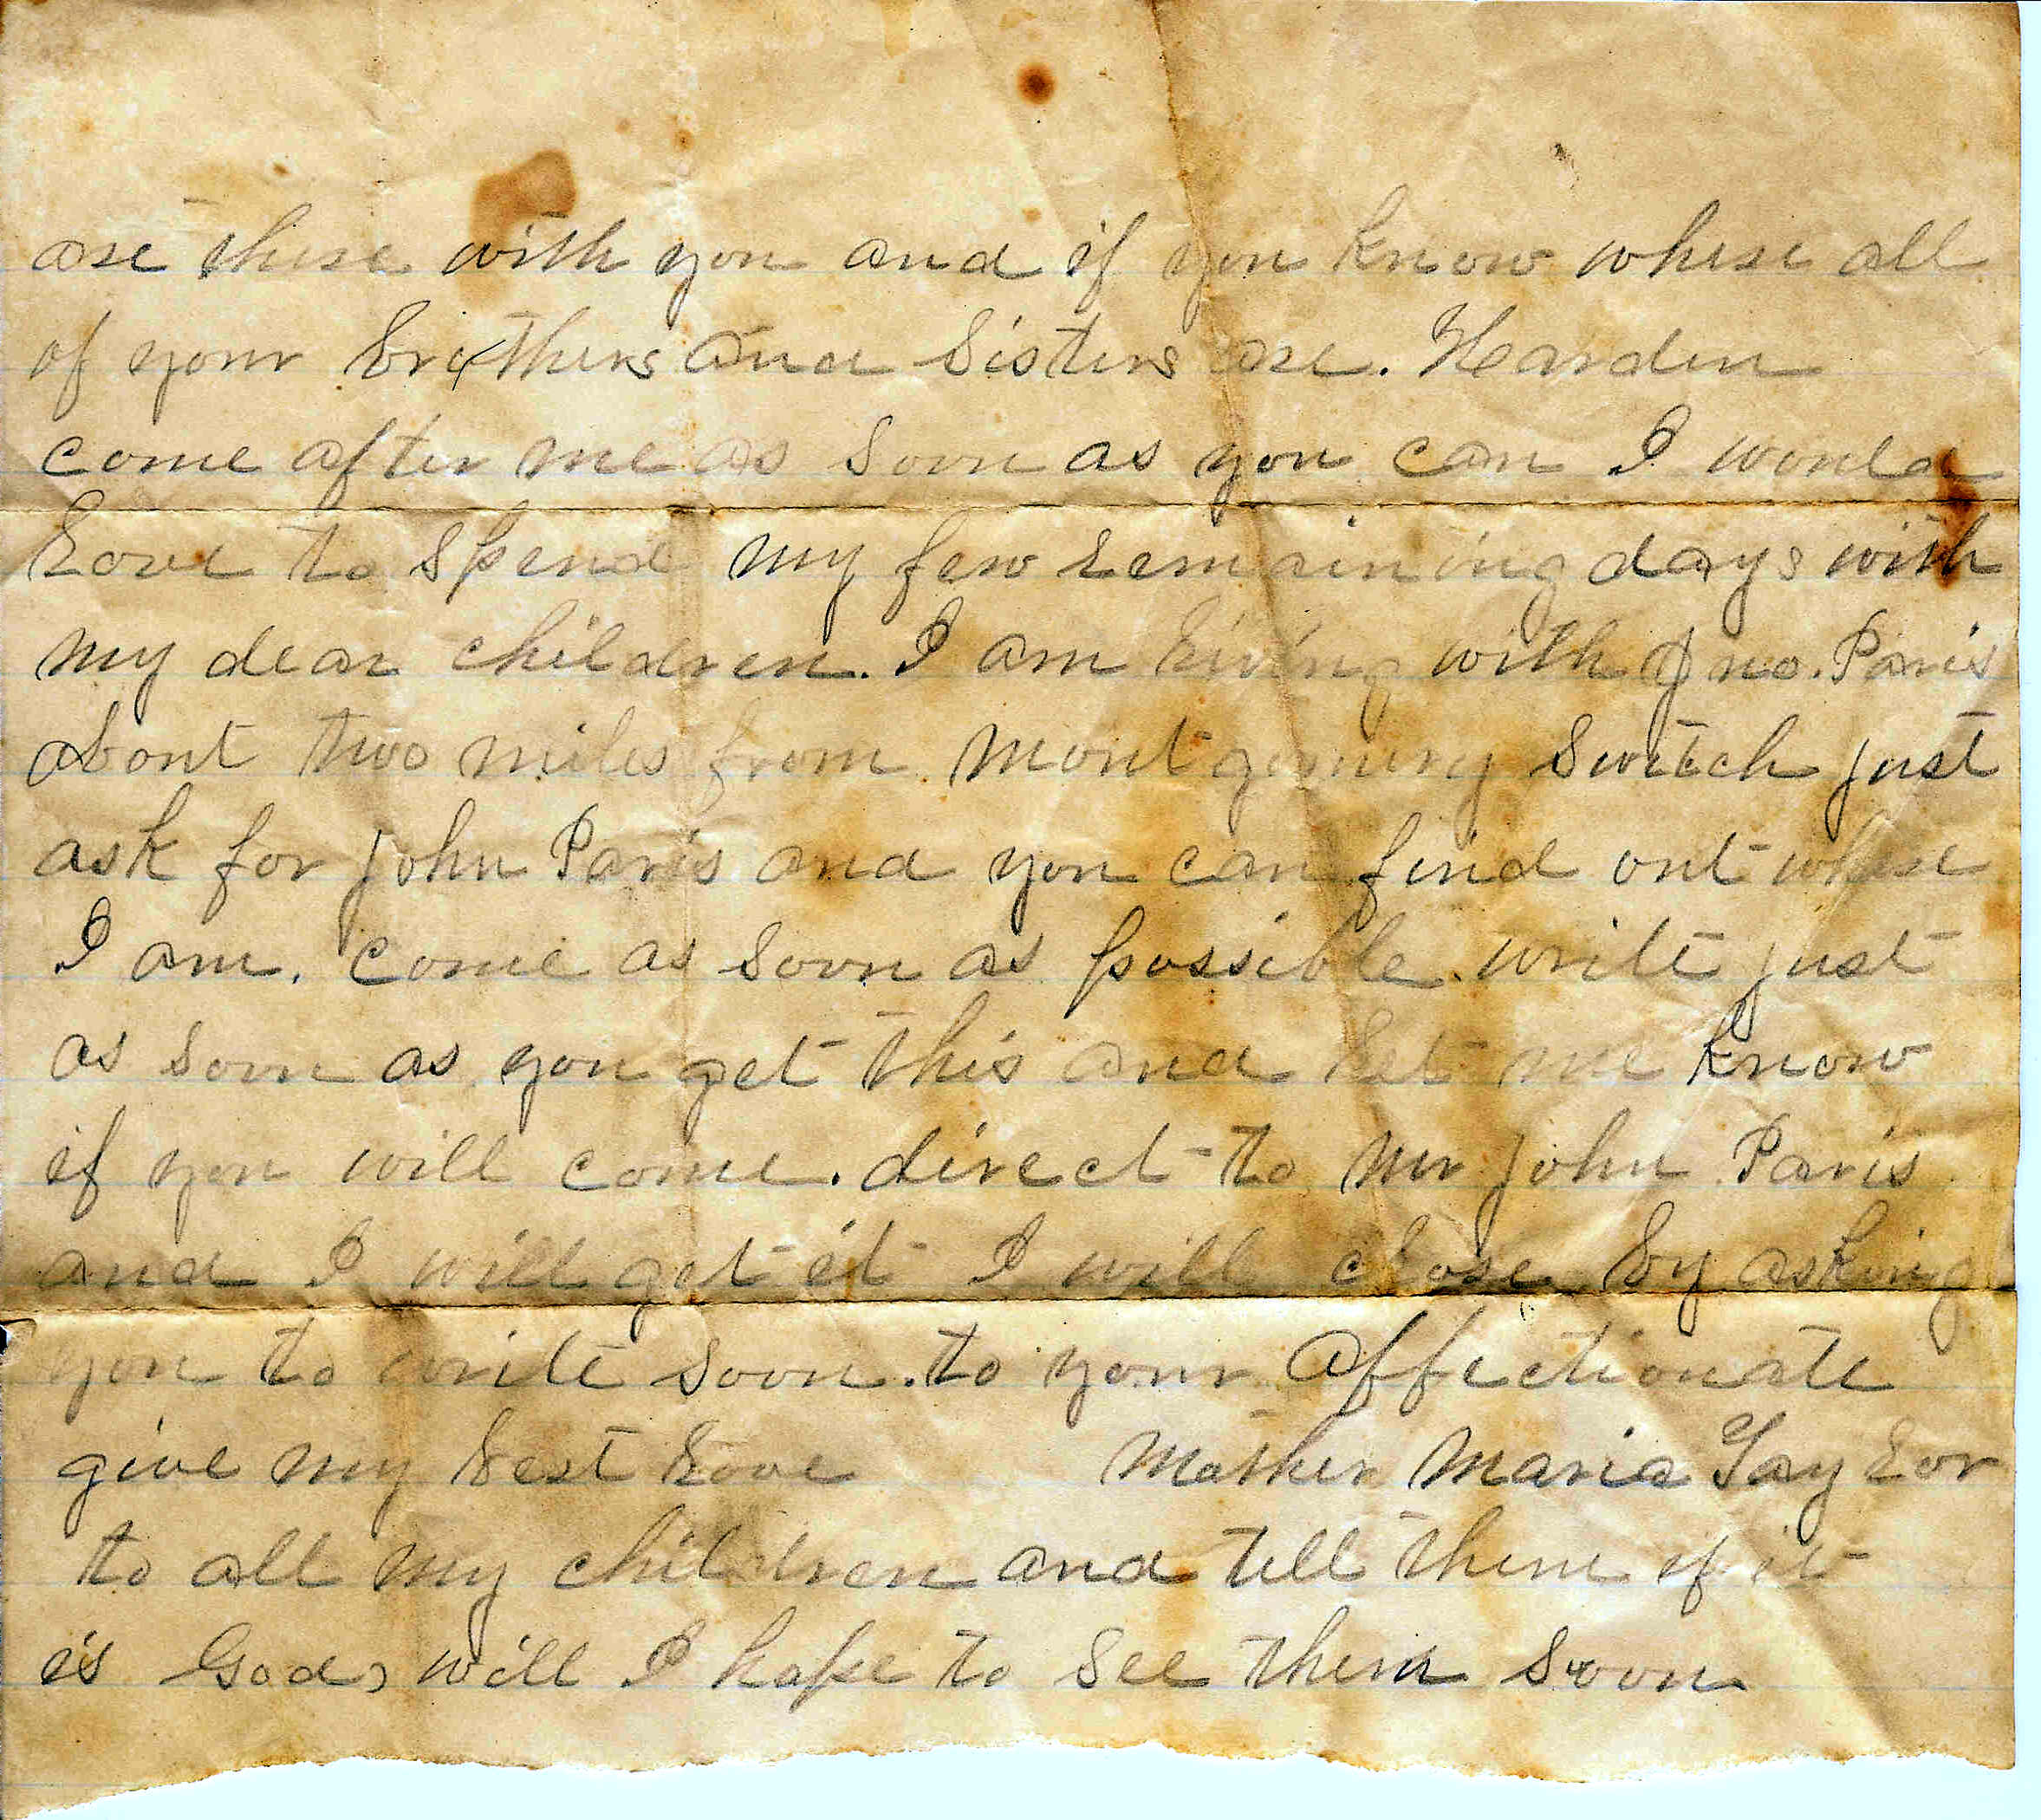 are there with you and if you know where all
of your brothers and Sisters are. Harden
come after me as Soon as you can I would
Love to Spend my few remaining days with
my dear children. I am Living with Jno. Paris
about two miles from Montgomery Switch just
ask for John Paris and you can find out where
I am. come as Soon as possible. write just
as Soon as you get this and Let me know
if you will come. direct to Mr John Paris
and I will get it I will close by asking
you to write Soon. to your Affectionate
give my best Love Mother Maria Taylor
to all my children and tell them if it
is God, will I hope to See them Soon